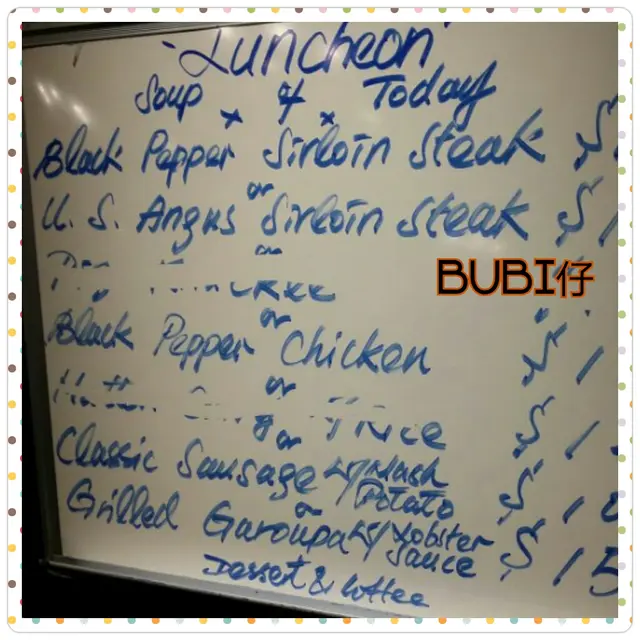 - Luncheon -
Soup of Today
x x
Black Pepper Sirloin Steak $
or
U.S. Angus Sirloin Steak $1
BUBI仔
or
Black Pepper Chicken $1
or
Rice $1
or
Classic Sausage w/ Mash Potato $1
or
Grilled Garoupa w/ Lobster Sauce $15
Dessert & Coffee